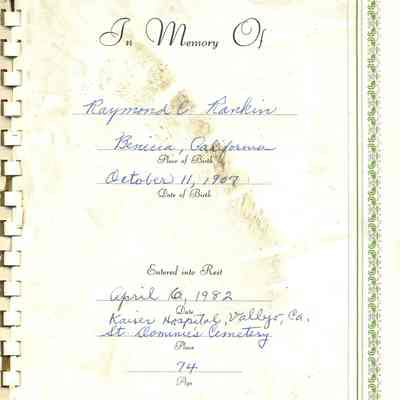 In Memory Of
Raymond C Rankin
Benicia, California
Place of Birth
October 11, 1907
Date of Birth
Entered into Rest
April 6, 1982
Date
Kaiser Hospital, Vallejo, Ca.
St Dominics Cemetery
Place
74
Age